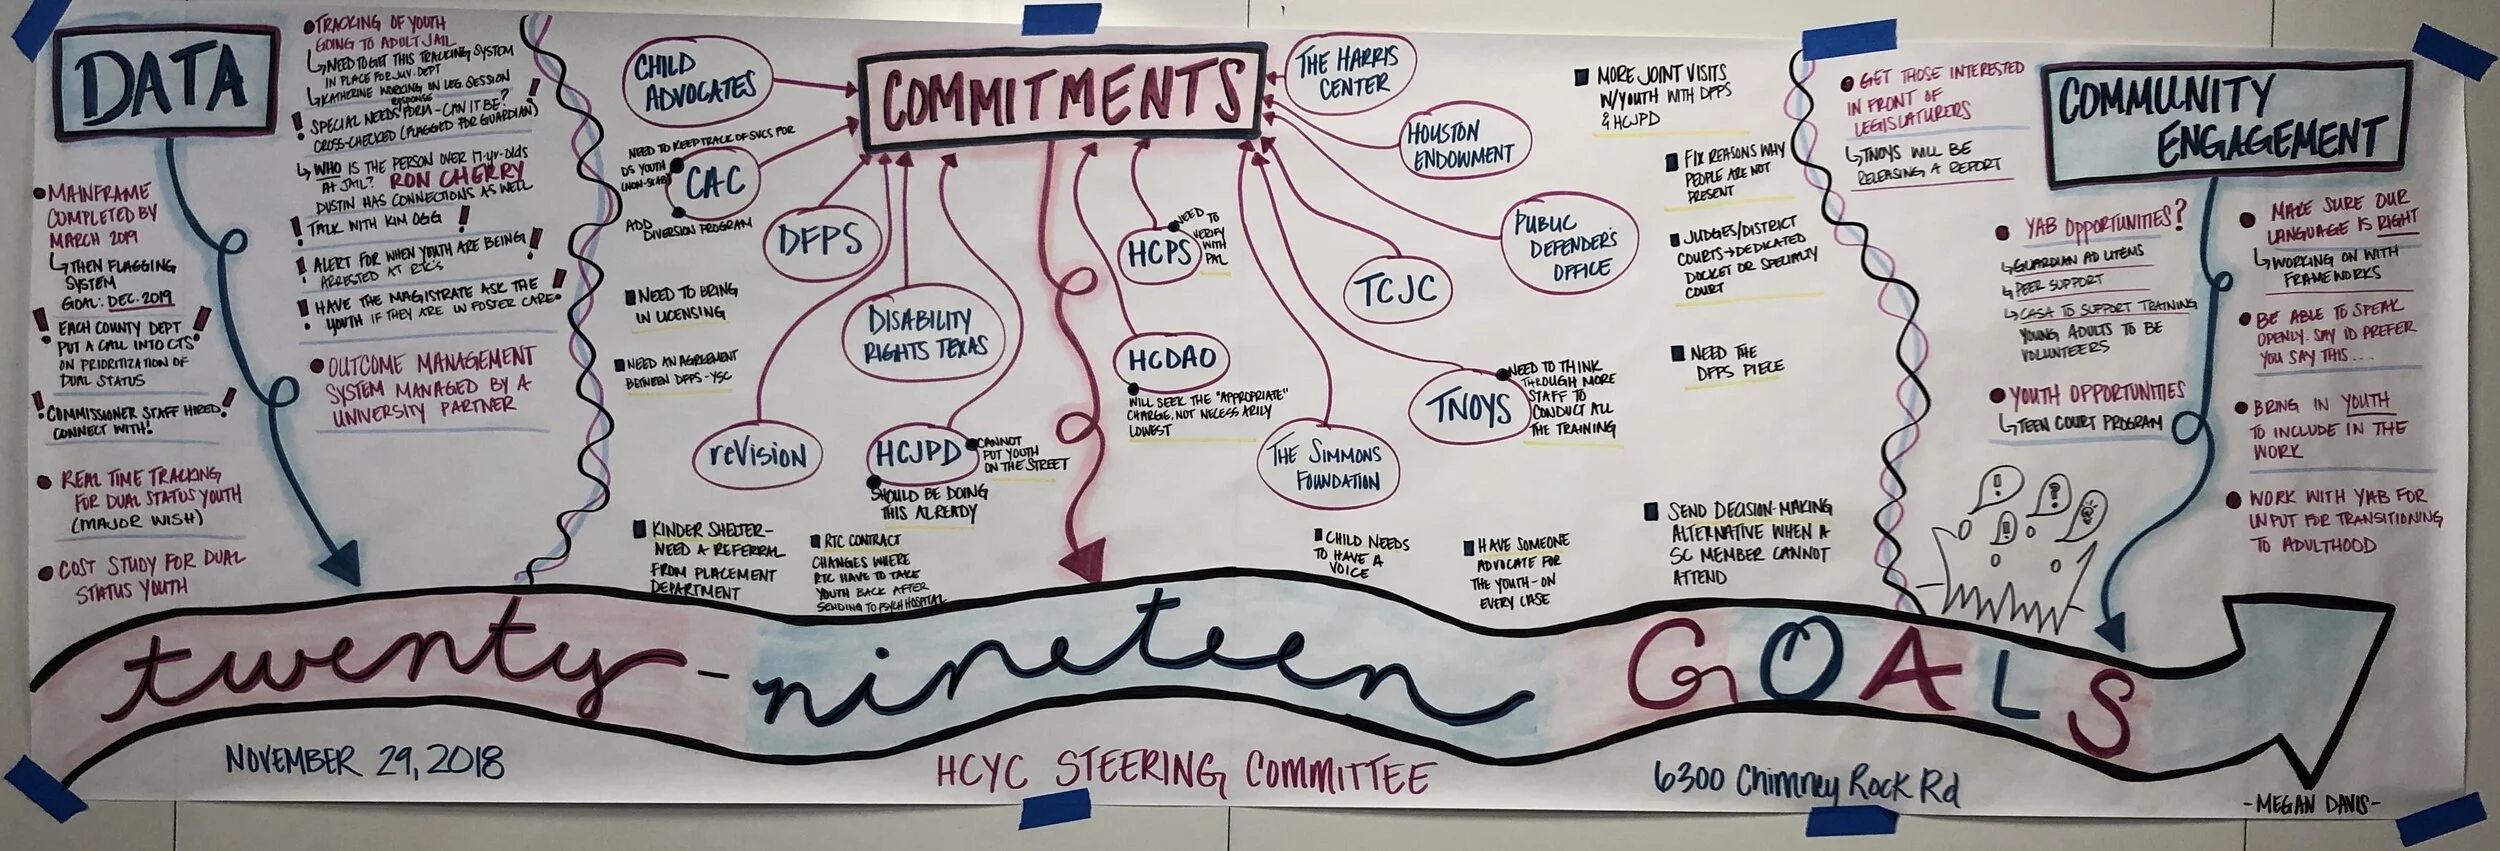 DATA
MAINFRAME
COMPLETED BY
MARCH 2019
THEN FLAGGING
SYSTEM
GOAL: DEC. 2019
EACH COUNTY DEPT
PUT A CALL INTO CTS
ON PRIORITIZATION OF
DUAL STATUS
COMMISSIONER STAFF HIRED!
CONNECT WITH!
REAL TIME TRACKING
FOR DUAL STATUS YOUTH
(MAJOR WISH)
COST STUDY FOR DUAL
STATUS YOUTH
TRACKING OF YOUTH
GOING TO ADULT JAIL
NEED TO GET THIS TRACKING SYSTEM
IN PLACE FOR JUV. DEPT
KATHERINE WORKING ON LEG SESSION
RESPONSE
SPECIAL NEEDS FORM - CAN IT BE?
CROSS-CHECKED (FLAGGED FOR GUARDIAN)
WHO IS THE PERSON OVER 17-yr-olds
AT JAIL? RON CHERRY
DUSTIN HAS CONNECTIONS AS WELL
TALK WITH KIM OGG
ALERT FOR WHEN YOUTH ARE BEING
ARRESTED AT RTC'S
HAVE THE MAGISTRATE ASK THE
YOUTH IF THEY ARE IN FOSTER CARE
OUTCOME MANAGEMENT
SYSTEM MANAGED BY A
UNIVERSITY PARTNER
COMMITMENTS
CHILD
ADVOCATES
NEED TO KEEP TRACK OF SVCS FOR
DS YOUTH
CAC
ADD
DIVERSION PROGRAM
DFPS
DISABILITY
RIGHTS TEXAS
reVision
HCJPD
CANNOT
PUT YOUTH
ON THE STREET
SHOULD BE DOING
THIS ALREADY
HCPS
NEED TO
VERIFY
WITH
PAL
HCDAO
WILL SEEK THE "APPROPRIATE"
CHARGE, NOT NECESSARILY
LOWEST
THE HARRIS
CENTER
HOUSTON
ENDOWMENT
PUBLIC
DEFENDER'S
OFFICE
TCJC
TNOYS
NEED TO THINK
THROUGH MORE
STAFF TO
CONDUCT ALL
THE TRAINING
THE SIMMONS
FOUNDATION
NEED TO BRING
IN LICENSING
NEED AN AGREEMENT
BETWEEN DFPS-YSC
KINDER SHELTER-
NEED A REFERRAL
FROM PLACEMENT
DEPARTMENT
RTC CONTRACT
CHANGES WHERE
RTC HAVE TO TAKE
YOUTH BACK AFTER
SENDING TO PSYCH HOSPITAL
CHILD NEEDS
TO HAVE A
VOICE
HAVE SOMEONE
ADVOCATE FOR
THE YOUTH - ON
EVERY CASE
MORE JOINT VISITS
W/YOUTH WITH DFPS
& HCJPD
FIX REASONS WHY
PEOPLE ARE NOT
PRESENT
JUDGES/DISTRICT
COURTS→DEDICATED
DOCKET OR SPECIALTY
COURT
NEED THE
DFPS PIECE
SEND DECISION-MAKING
ALTERNATIVE WHEN A
SC MEMBER CANNOT
ATTEND
COMMUNITY
ENGAGEMENT
GET THOSE INTERESTED
IN FRONT OF
LEGISLATURERS
TNOYS WILL BE
RELEASING A REPORT
YAB OPPORTUNITIES?
GUARDIAN AD LITEMS
PEER SUPPORT
CASA TO SUPPORT TRAINING
YOUNG ADULTS TO BE
VOLUNTEERS
YOUTH OPPORTUNITIES
TEEN COURT PROGRAM
MAKE SURE OUR
LANGUAGE IS RIGHT
WORKING ON WITH
FRAMEWORKS
BE ABLE TO SPEAK
OPENLY. SAY ID PREFER
YOU SAY THIS....
BRING IN YOUTH
TO INCLUDE IN THE
WORK
WORK WITH YAB FOR
INPUT FOR TRANSITIONING
TO ADULTHOOD
twenty-nineteen GOALS
NOVEMBER 29, 2018
HCYC STEERING COMMITTEE
6300 Chimney Rock Rd
-MEGAN DAVIS-